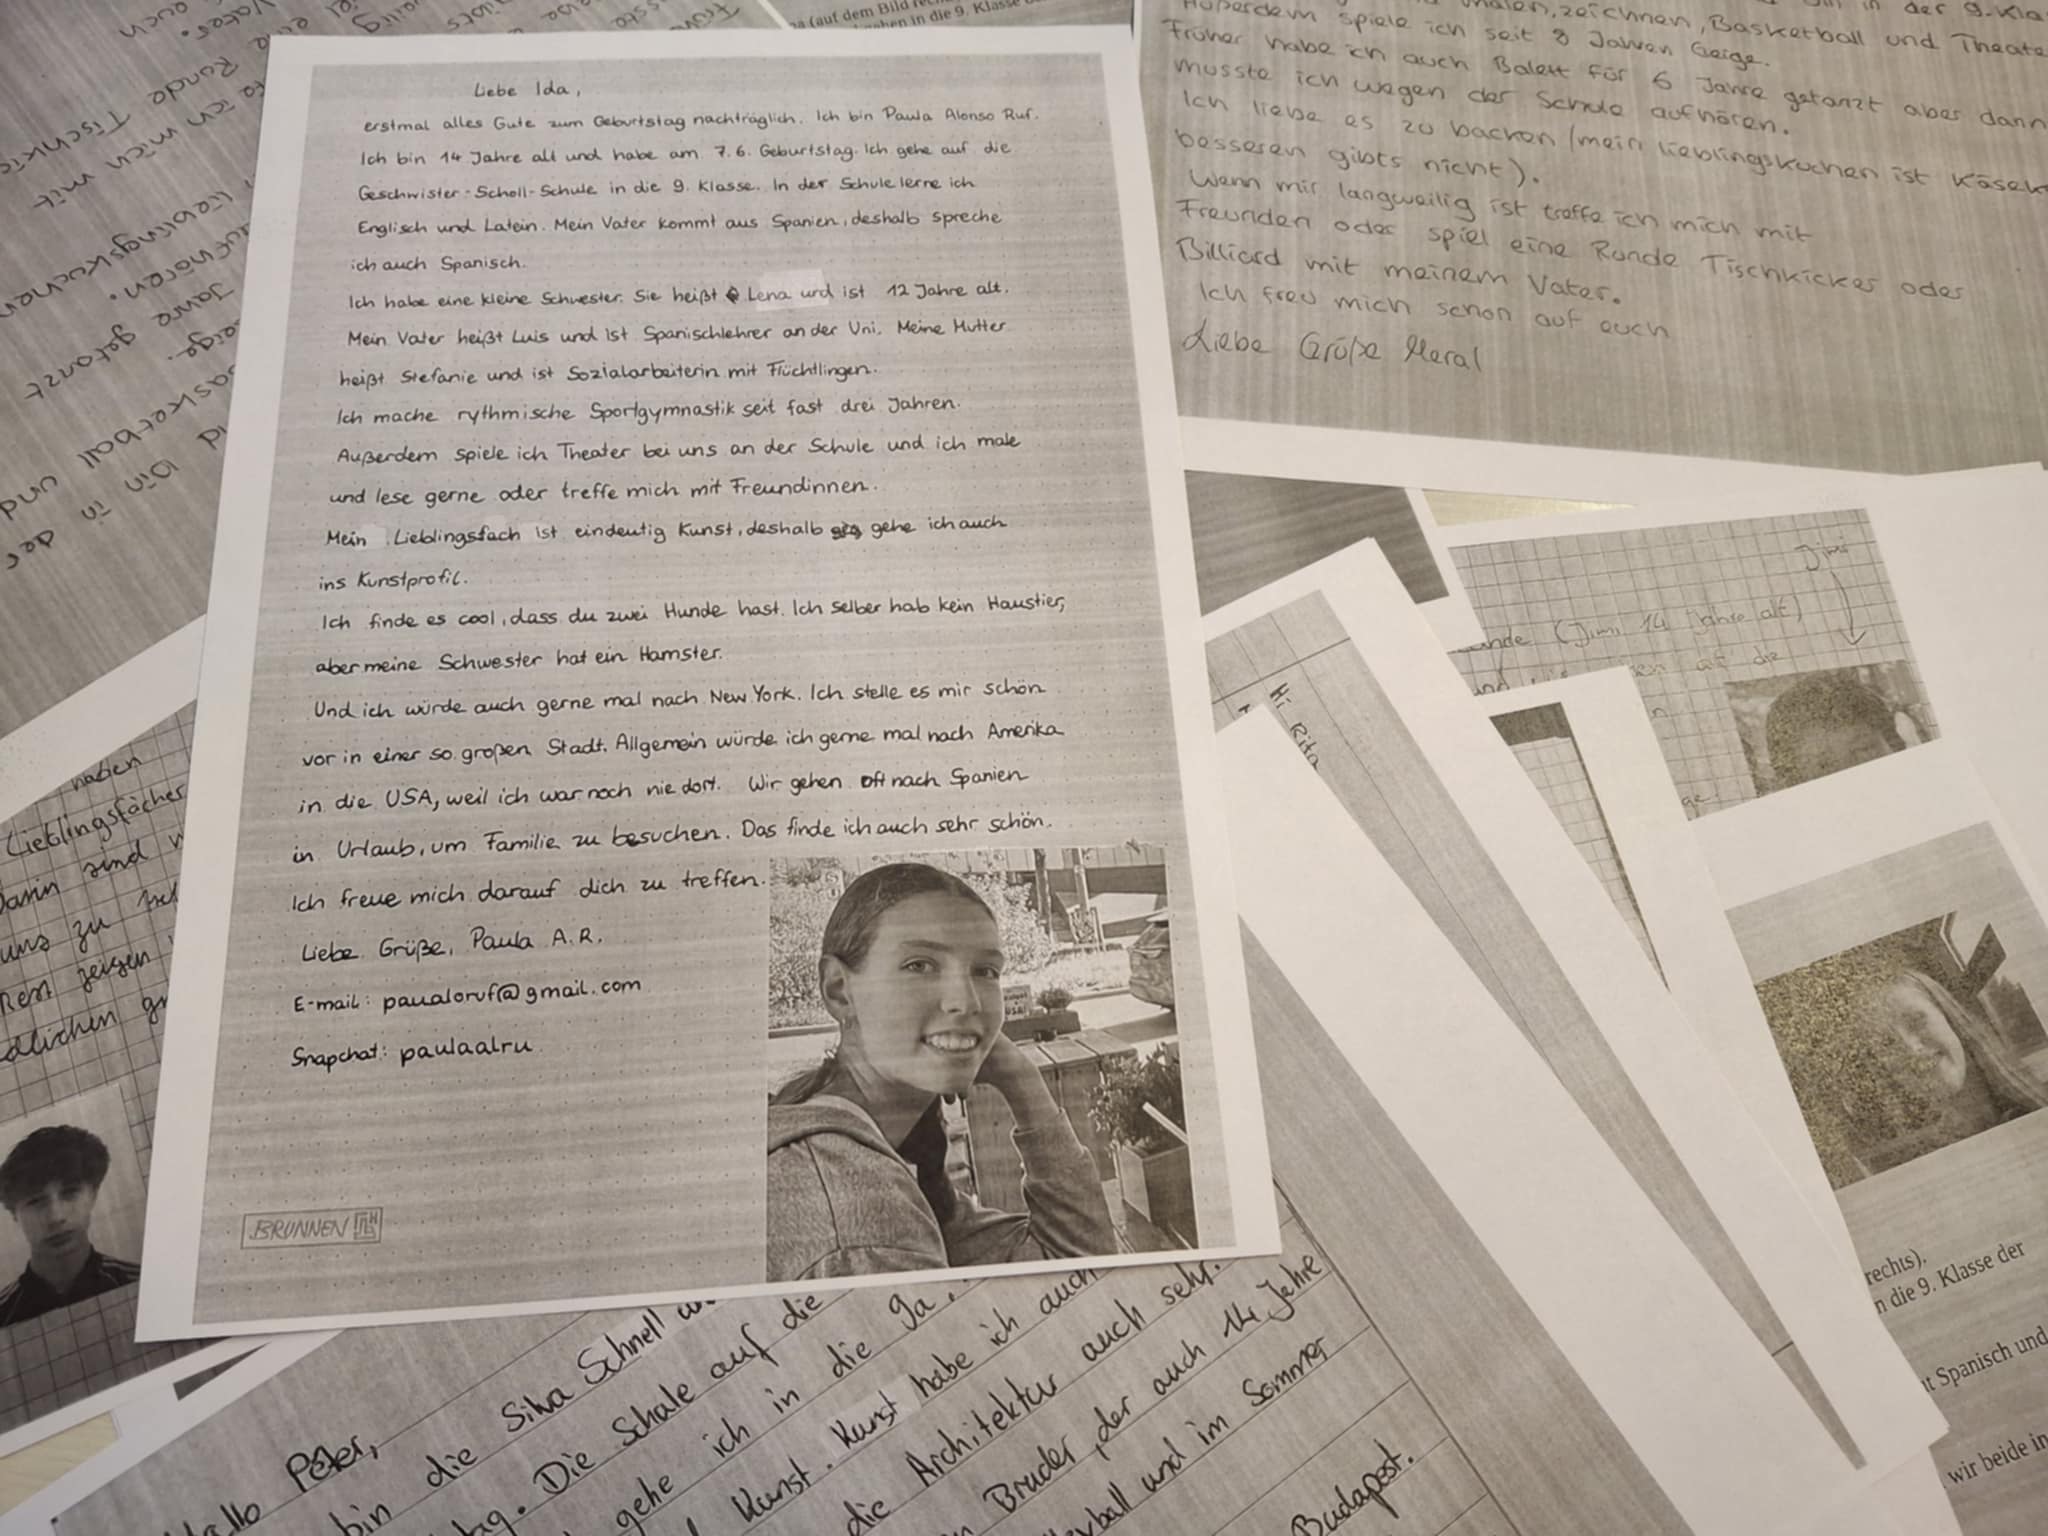 Liebe Ida,
erstmal alles Gute zum Geburtstag nachträglich. Ich bin Paula Alonso Ruf.
Ich bin 14 Jahre alt und habe am 7.6. Geburtstag. Ich gehe auf die
Geschwister-Scholl-Schule in die 9. Klasse. In der Schule lerne ich
Englisch und Latein. Mein Vater kommt aus Spanien, deshalb spreche
ich auch Spanisch.
Ich habe eine kleine Schwester. Sie heißt Lena und ist 12 Jahre alt.
Mein Vater heißt Luis und ist Spanischlehrer an der Uni. Meine Mutter
heißt Stefanie und ist Sozialarbeiterin mit Flüchtlingen.
Ich mache rythmische Sportgymnastik seit fast drei Jahren.
Außerdem spiele ich Theater bei uns an der Schule und ich male
und lese gerne oder treffe mich mit Freundinnen.
Mein Lieblingsfach ist eindeutig Kunst, deshalb gehe ich auch
ins Kunstprofil.
Ich finde es cool, dass du zwei Hunde hast. Ich selber hab kein Haustier,
aber meine Schwester hat ein Hamster.
Und ich würde auch gerne mal nach New York. Ich stelle es mir schön
vor in einer so großen Stadt. Allgemein würde ich gerne mal nach Amerika
in die USA, weil ich war noch nie dort. Wir gehen oft nach Spanien
in Urlaub, um Familie zu besuchen. Das finde ich auch sehr schön.
Ich freue mich darauf dich zu treffen.
Liebe Grüße, Paula A.R.
E-mail: paualoruf@gmail.com
Snapchat: paulaalru
BRUNNEN
(auf dem Bild
in die 9. Klasse
in der 9. Kla
malen, zeichnen, Basketball und Theate
Außerdem spiele ich seit 8 Jahren Geige.
Früher habe ich auch Balett für 6 Jahre getanzt aber dann
musste ich wegen der Schule aufhören.
Ich liebe es zu backen (mein lieblingskuchen ist Käsek
besseren gibts nicht).
Wenn mir langweilig ist treffe ich mich mit
Freunden oder spiel eine Runde Tischkicker oder
Billiard mit meinem Vater.
Ich freu mich schon auf euch
Liebe Grüße Meral
Jimi
(Jimi, 14 Jahre alt)
auf die
Hi Rita
haben
Lieblingsfächer
Darin sind
uns zu
zeigen
dlichen
Hallo Péter,
bin die Silva Schnell
Die Schule auf die
gehe ich in die 9a,
Kunst. Kunst habe ich auch
die Architektur auch sehr.
Bruder, der auch 14 Jahre
und im Sommer
Budapest.
rechts).
n die 9. Klasse der
Spanisch und
wir beide in